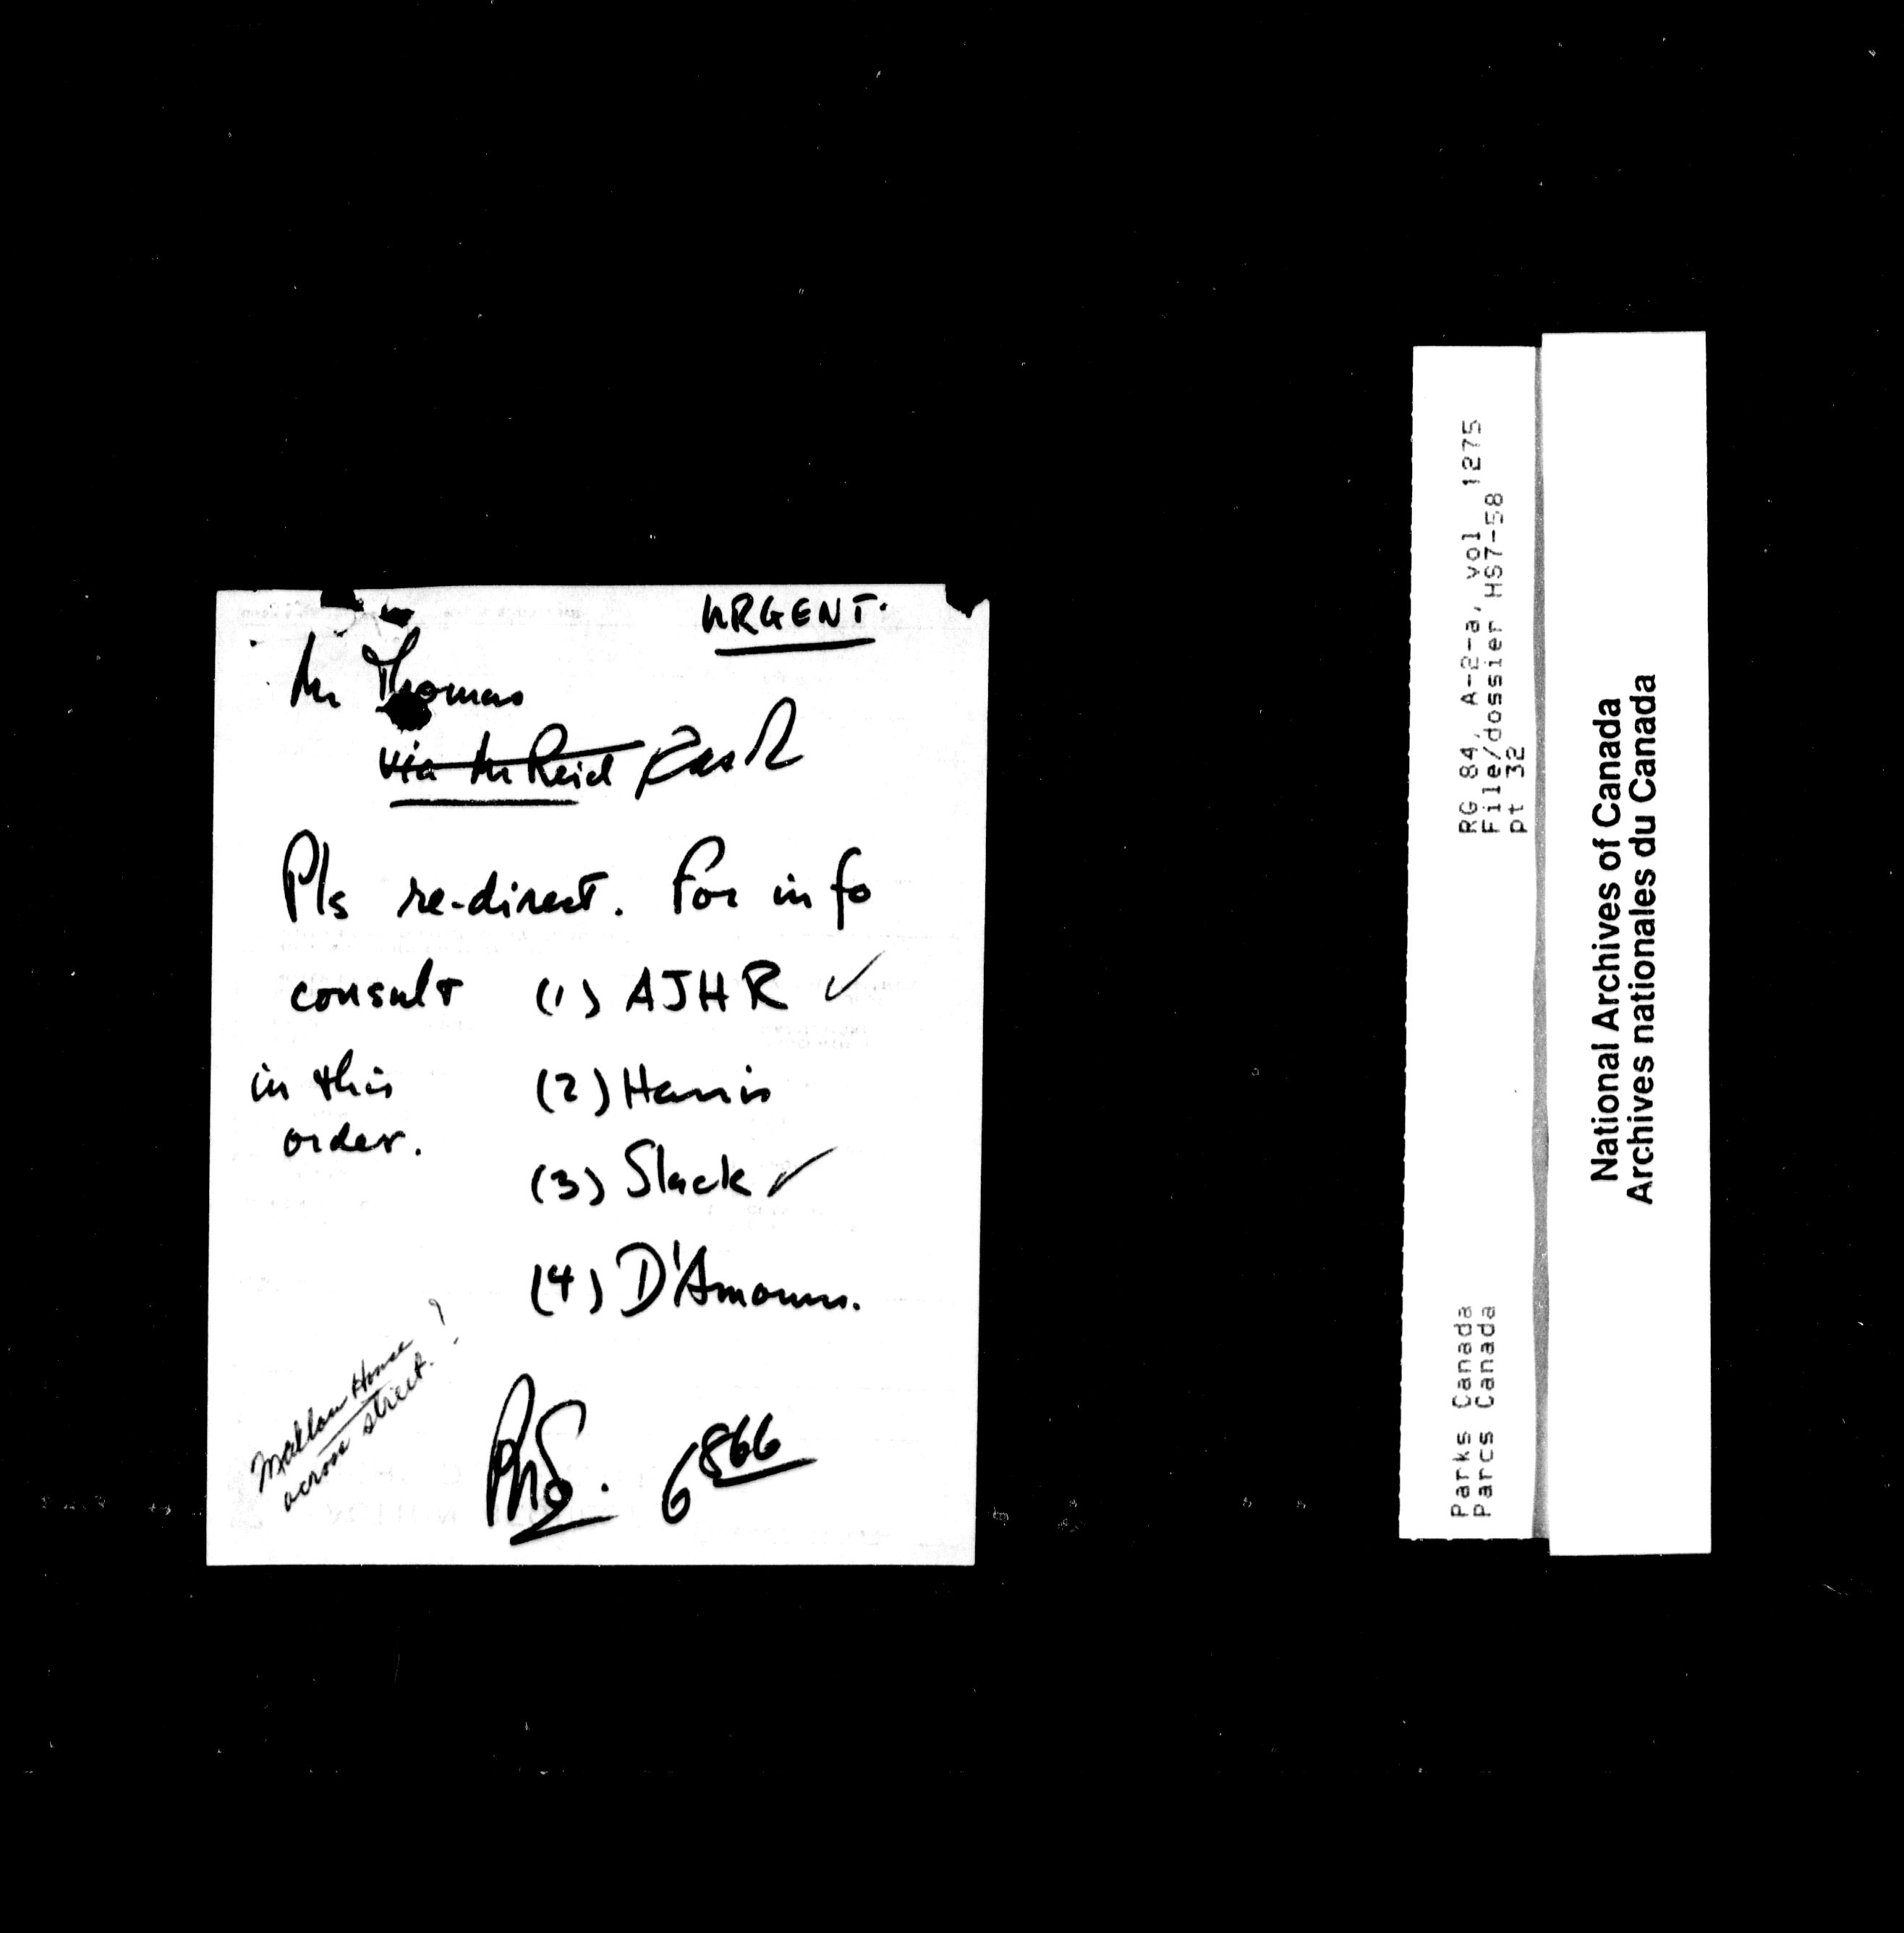 URGENT.
Mr Thomas
via Mr Reid
Pls re-direct. For info
consult (1) AJHR ✓
in this (2) Harris
order.
(3) Slack ✓
(4) D'Amours.
across street. ?
PHS. 6866
RG 84, A-2-a, vol 1275
File/dossier HS7-58
pt 32
Parks Canada
Parcs Canada
National Archives of Canada
Archives nationales du Canada